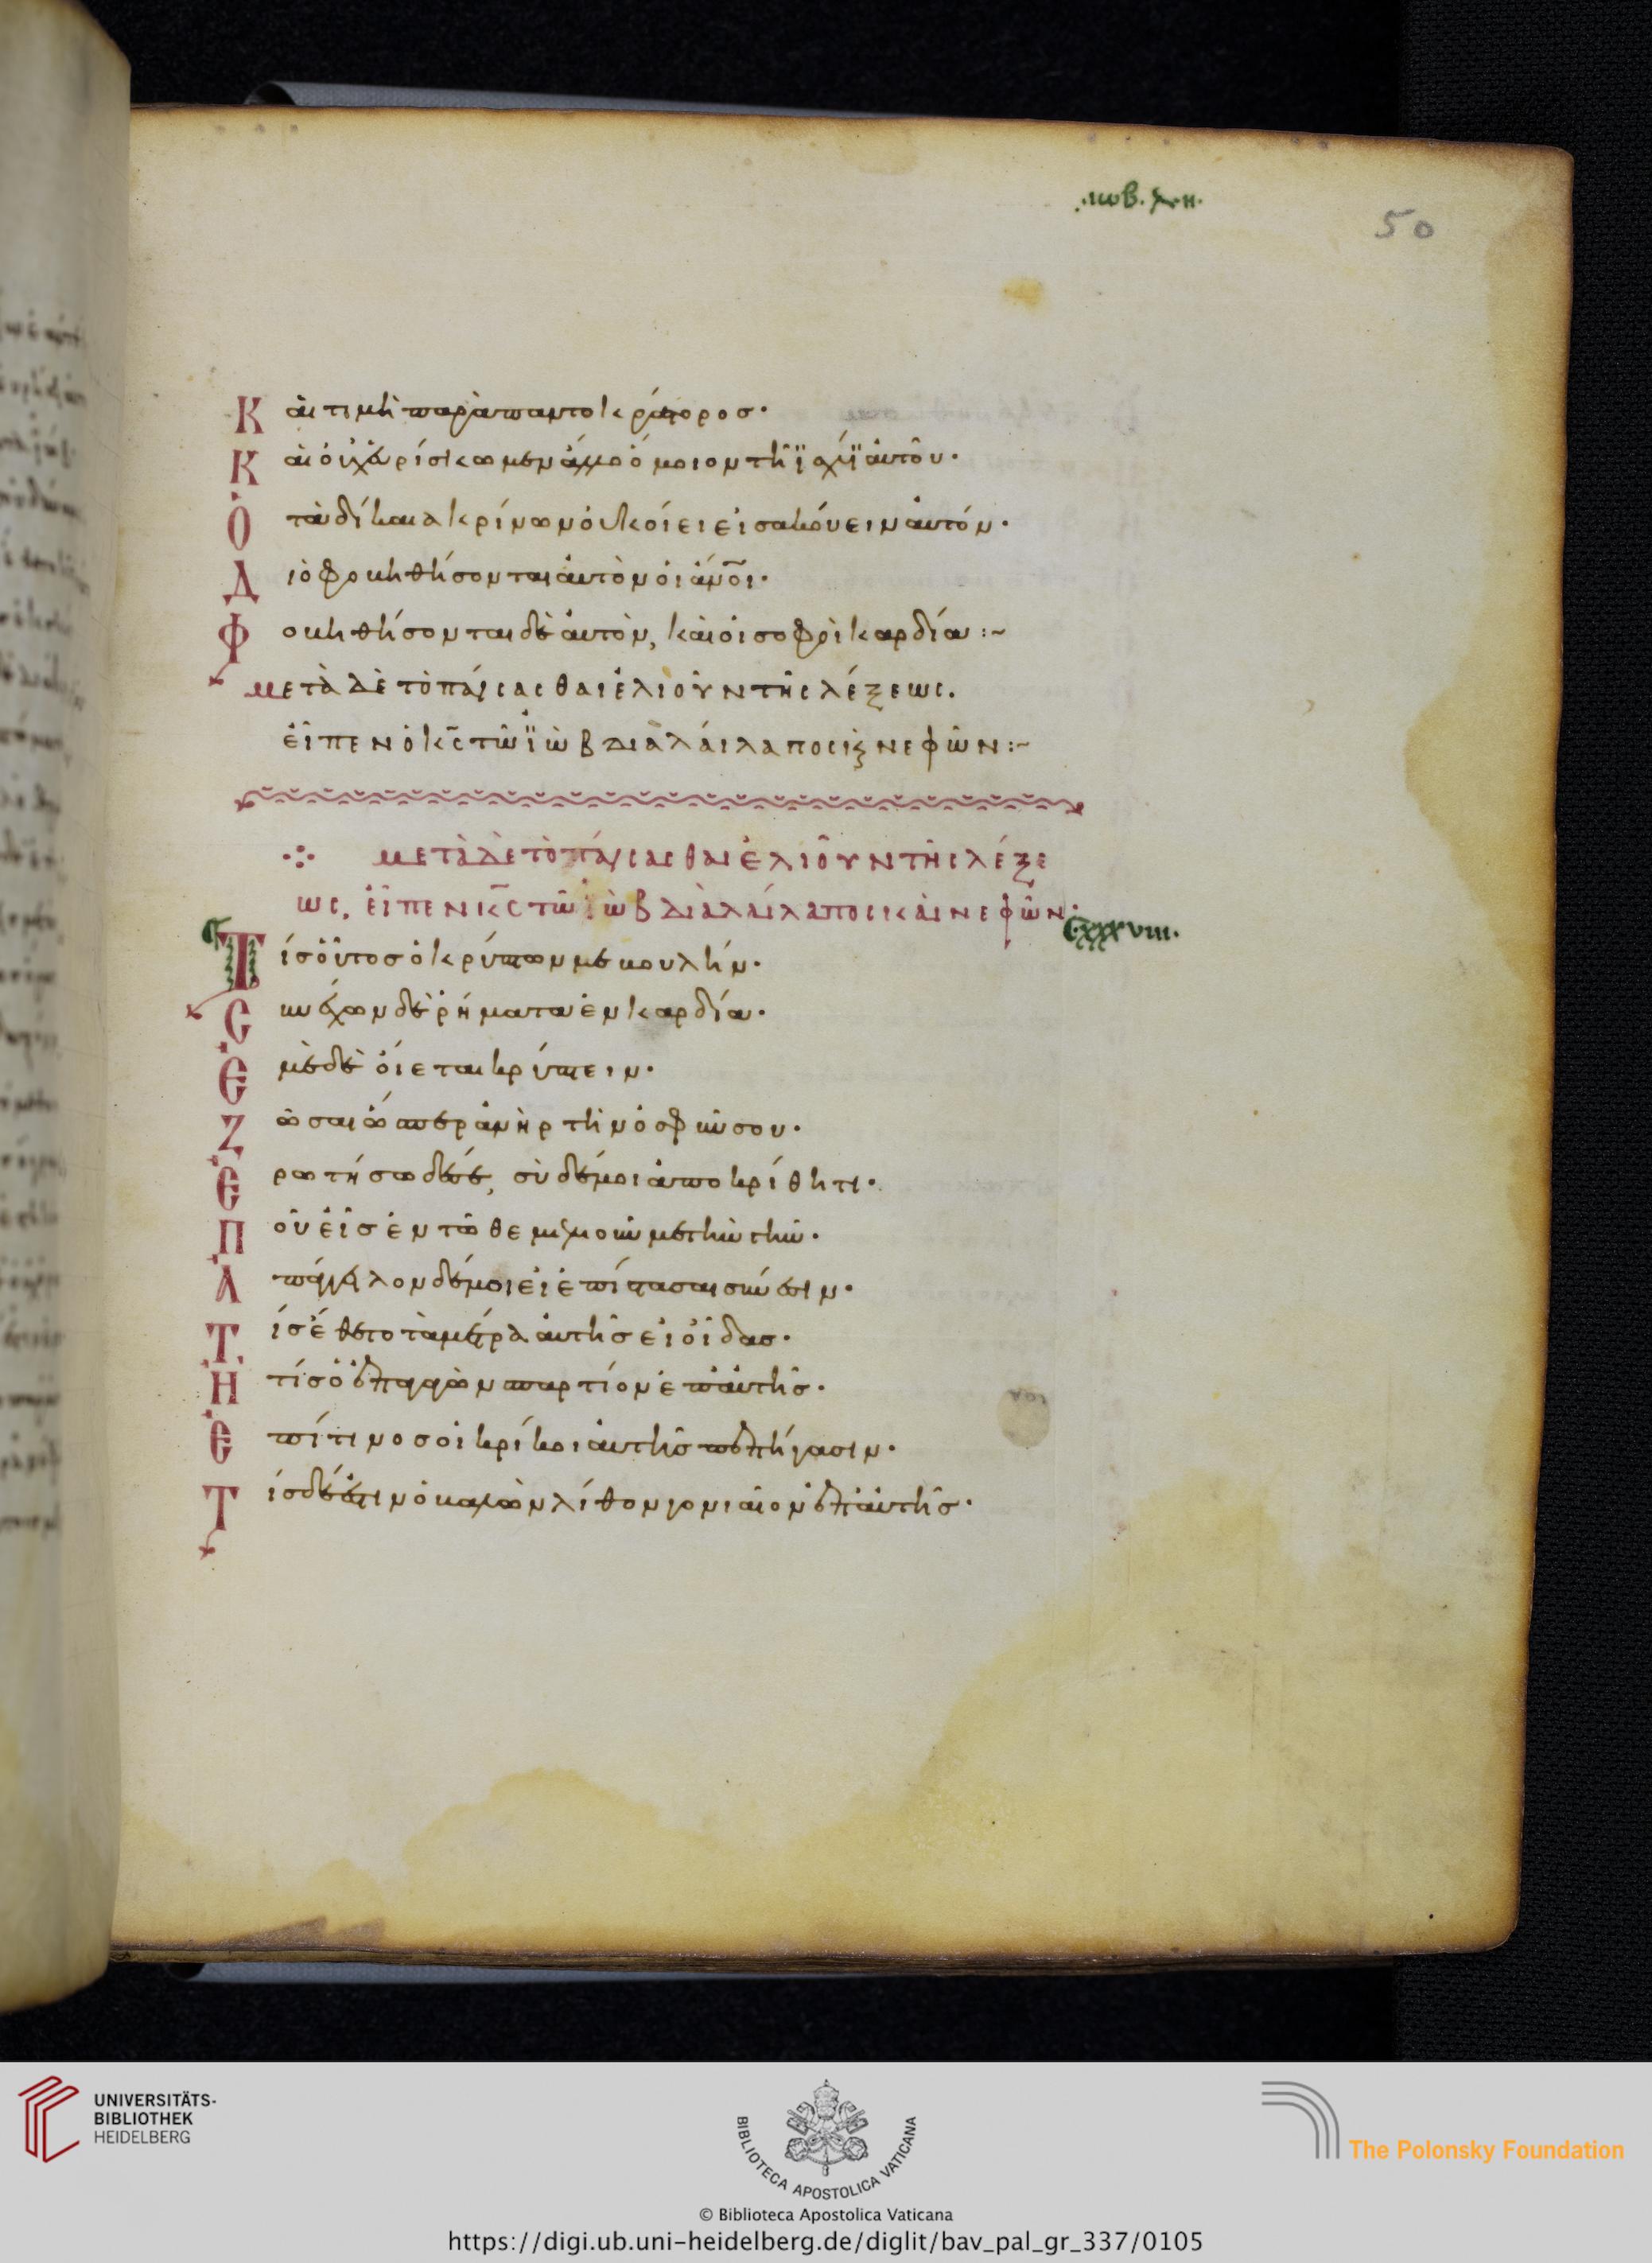 ·ιωβ. λη·
50
Καὶ τιμὴ παρὰ παντοκράτορος·
Καὶ οὐχ εὑρίσκωμεν ἄλλο ὅμοιον τῆ ϊσχύϊ αὐτοῦ·
Ὁ τὰ δίκαια κρίνων οὐκ οἴει εἰσακούειν αὐτόν·
Διὸ φοβηθήσονται αὐτὸν οἱ ἄνοι·
Φοβηθήσονται δὲ αὐτὸν, καὶ οἱ σοφοὶ καρδία:~
μετὰ δὲ τὸ παύσασθαι ἐλιοῦν τῆς λέξεως.
εἶπεν ὁ κς τῶ ϊὼβ διὰ λαίλαπος κ νεφῶν:~
μετὰ δὲ τὸ παύσασθαι ἐλιοῦν τῆς λέξε
ως, εἶπεν κς τῶ ϊὼβ διὰ λαίλαπος καὶ νεφῶν·
Cxxxviii.
Τίς οὗτος ὁ κρύπτων με βουλήν·
Συνέχων δὲ ῥήματα ἐν καρδία·
Ἐμὲ δὲ οἴεται κρύπτειν·
Ζῶσαι ὥσπερ ἀνὴρ τὴν ὀσφύν σου·
Ἐρωτήσω δέ σε, σὺ δέ μοι ἀποκρίθητι·
Ποῦ εἶς ἐν τῶ θεμελιοῦν με τὴν γῆν·
Ἀπάγγειλον δέ μοι εἰ ἐπίστασαι σύνεσιν·
Τίς ἔθετο τὰ μέτρα αὐτῆς εἰ οἶδας·
Ἢ τίς ὁ ἐπαγαγὼν σπαρτίον ἐπ' αὐτῆς·
Ἐπὶ τίνος οἱ κρίκοι αὐτῆς πεπήγασιν·
Τίς δέ ἐστιν ὁ βαλὼν λίθον γωνιαῖον ἐπ' αὐτῆς·
UNIVERSITÄTS-
BIBLIOTHEK
HEIDELBERG
BIBLIOTECA APOSTOLICA VATICANA
The Polonsky Foundation
© Biblioteca Apostolica Vaticana
https://digi.ub.uni-heidelberg.de/diglit/bav_pal_gr_337/0105